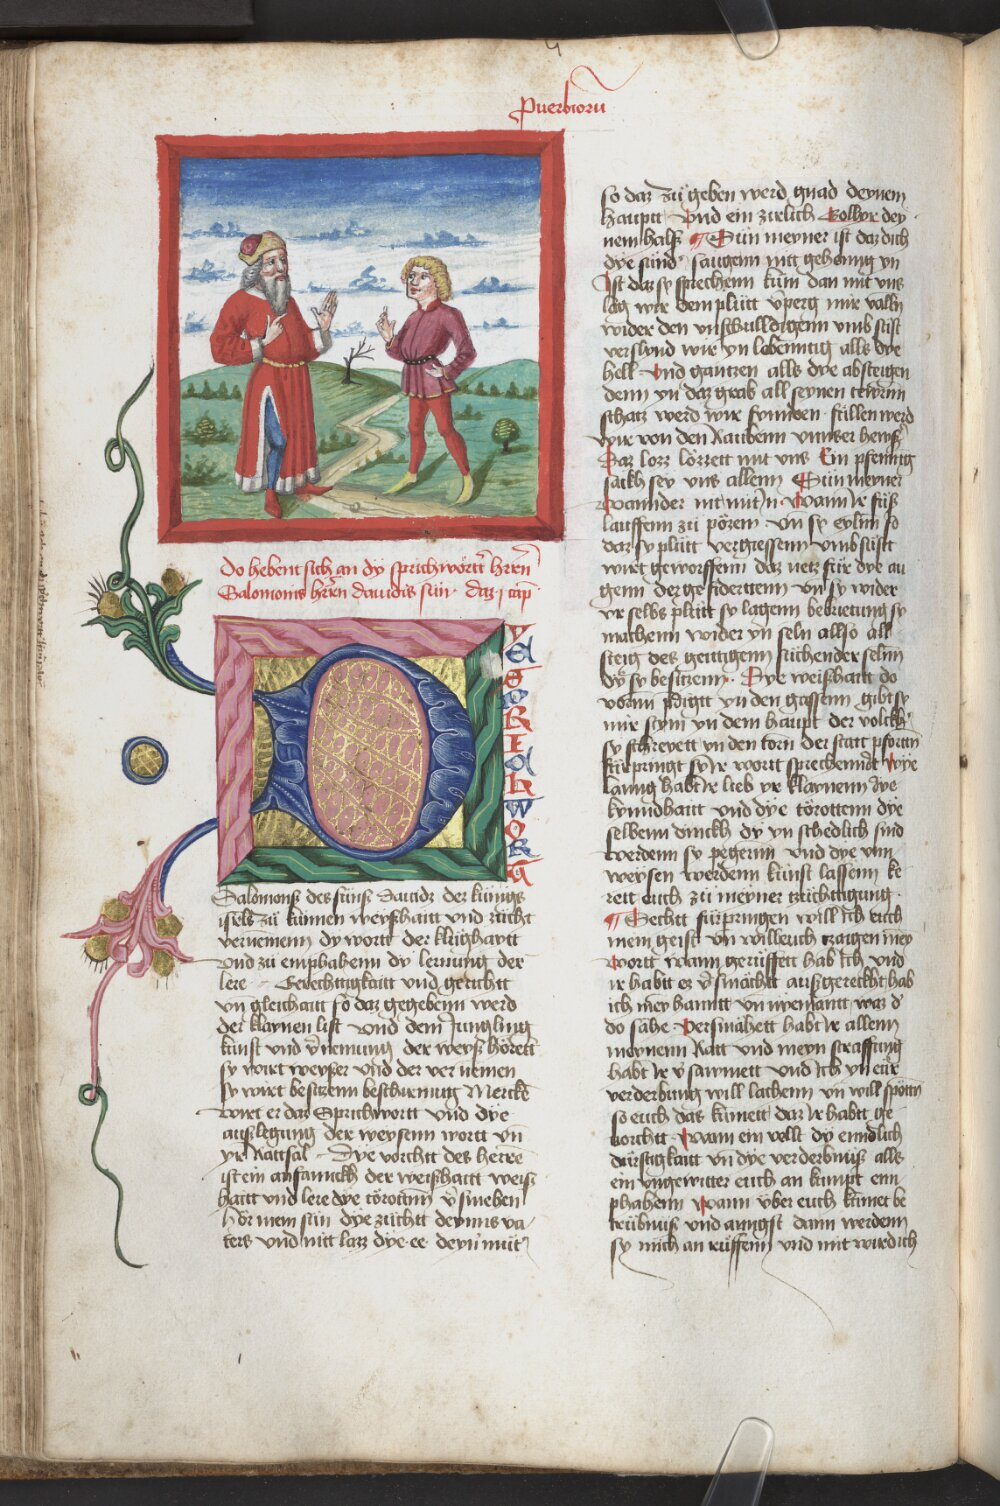 Puerbiorū
do hebent sich an dÿ sprichwörtt hren̄
Salomonis hren̄ dauidis sün · daz · j cap̄
DYE GORI AL WORA
Salomonß des sünß Dauidz dez künigs
isrls zü künnen weyßhaitt vnd zücht
vernemenn dy wortt der klüghaytt
vnd zü emphahenn dy lernung der
lere · Gerechtigkaitt vnd gericht
vn̄ gleichaitt so daz gegebenn werd
der klaynen list vnd dem Jungling
kunst vnd v̄nemung der weyß hörett
sy wirt weyßer vnd der ver nemen
sy wirt besitzenn beschirmug Mercke
wirt er daz Sprichwortt vnd dye
außlegung der weysenn wortt vn̄
yr Rattsal · Dye vorchtt des herre
ist ein anfanckh der weißhaitt weiß
haitt vnd lere dye törottn̄ v̄smehen
Hör mein sün dye züchtt deynns va
ters vnd nitt lazz dye ee deyn müt
so daz zü geben werd gnad deynem
hauptt vnd ein zirlich kollyr dey
nem halß ¶ Sün meyner ist daz dich
dye sünd saugenn nitt gehönng yn
Ist daz sy sprechenn küm dan mit vns
lag wir dem plütt v̄perg mir valln
wider den vnschulldigenn vmb süst
verslynd wir yn lebenntig alls dye
hell · vnd gantzen alls dye absteigen
denn yn daz grab all seynen tewrin
schatz werd wir fynnden · füllen werd
wir von den Raubenn vnnser hewß
Daz lozz lözzett mit vns Ein pfennig
säckh sey vns allenn Sün meyner
wannder nit mit in · Wann ir füß
lauffenn zü pözem vn̄ sy eylnn so
daz sy plütt vergiessenn vmb süst
wirt geworffenn daz netz für dye au
genn der gefidertten vn̄ sy wider
yr selbs plütt sy lagenn betrietung sy
machenn wider yn seln allso all
steig des geittigenn süchender seln̄
dÿ sy besitzenn · Dye weißhaitt do
vorn̄n p̄digtt yn den gassenn gibt sy
mir stym yn dem haupt der volckh
sy schreyett yn den törn der statt pfortn̄
fürpringt sy ir wortt sprechenndt Wye
lanng habt ir lieb yr klaynenn dye
kynndhaitt vnd dye törottenn dye
selbenn dünckh dy yn schedlich sind
werdenn sy pegernn vnd dye vnn
weysen werdenn künst lassenn ke
rett euch zü meyner züchttigung ·
¶ Sechtt fürpringen will ich euch
mein geist vn̄ will euch zaigen mey
wortt wann gerüffett hab ich vnd
ir habtt ez v̄smächtt außgerecktt hab
ich mey hanntt vn̄ nyemantt waz d'
do sähe Versmähett habt ir allenn
meynenn Ratt vnd meyn straffung
habt ir v̄sawmett vnd Ich yn eür
verderbung will lachenn vn̄ will spottn̄
so euch das kümett daz ir habtt ge
vorchtt · Wann ein vellt dÿ enndlich
dürstigkaitt vn̄ dye verderbnüß alls
ein vngewitter euch an kumpt enn
phahenn wann vber euch kumet be
trübnüß vnd anngst dann werdenn
sy mich an rüffenn vnd nit wird ich